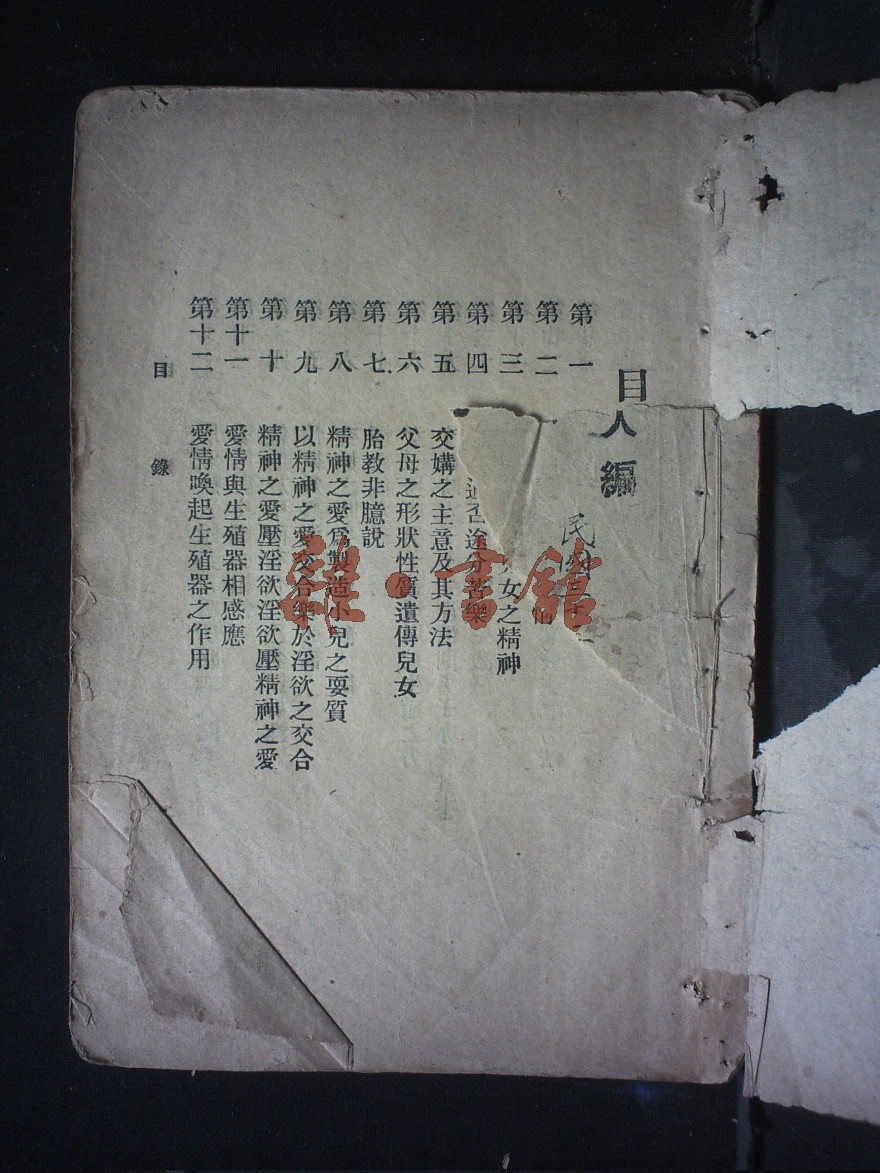 目
人編
民國
第一
第二
第三 女之精神
第四 否途分苦樂
第五 交媾之主意及其方法
第六 父母之形狀性質遺傳兒女
第七 胎教非臆說
第八 精神之愛爲製造小兒之要質
第九 以精神之愛交合樂於淫欲之交合
第十 精神之愛壓淫欲淫欲壓精神之愛
第十一 愛情與生殖器相感應
第十二 愛情喚起生殖器之作用
目錄
雜·書館